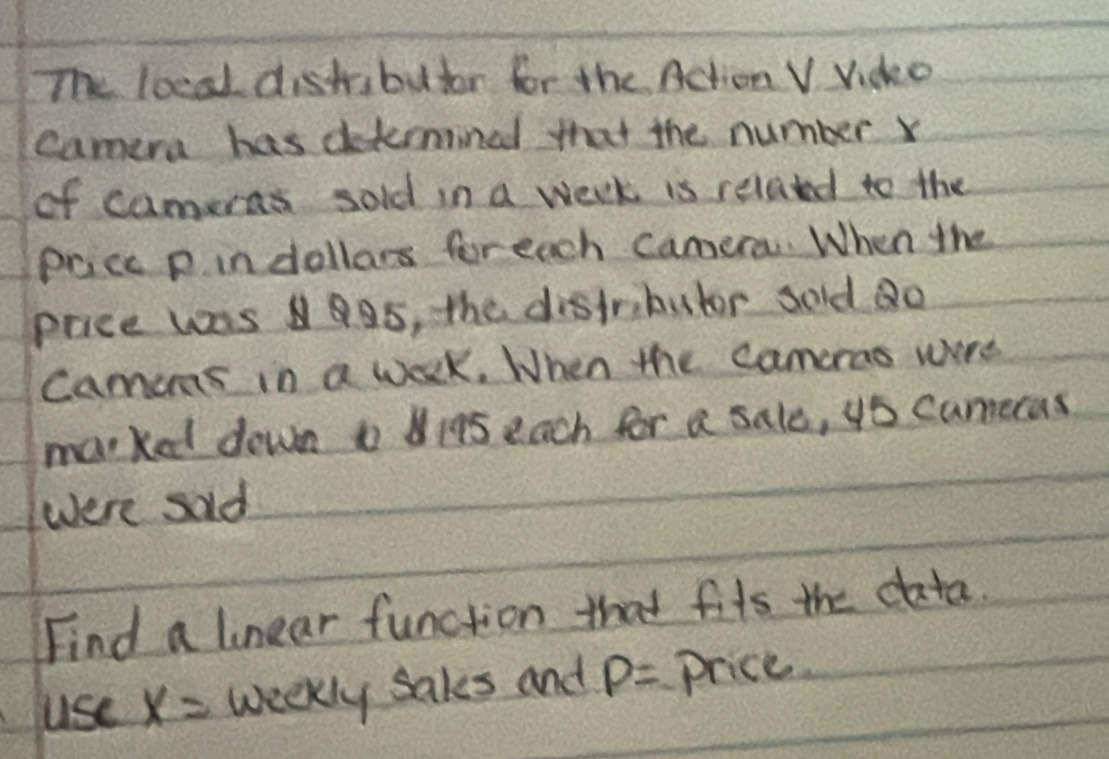 The local distributor for the Action V Video
camera has determined that the number x
of cameras sold in a week is related to the
price p in dollars for each camera. When the
price was $ 225, the distributor sold 20
Cameras in a week. When the cameras were
marked down to $195 each for a sale, 45 Cameras
were sold
Find a linear function that fits the data.
use x = weekly sales and p = price.